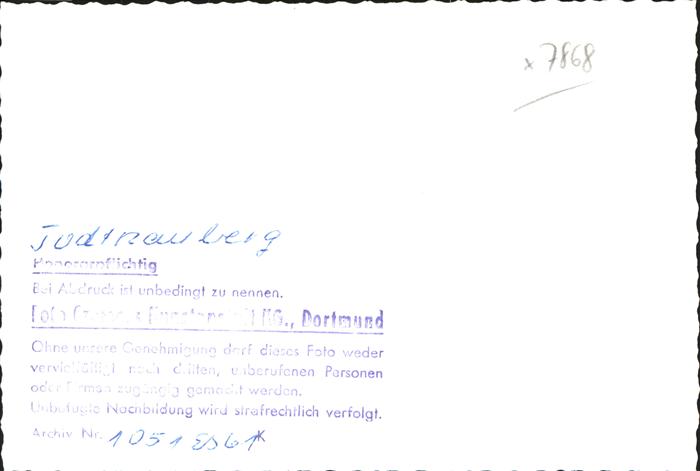 x 7868
Todtnauberg
Honorarpflichtig
Bei Abdruck ist unbedingt zu nennen.
Foto Kunstanstalt KG., Dortmund
Ohne unsere Genehmigung darf dieses Foto weder
vervielfältigt noch dritten, unberufenen Personen
oder Firmen zugängig gemacht werden.
Unbefugte Nachbildung wird strafrechtlich verfolgt.
Archiv Nr. 1051